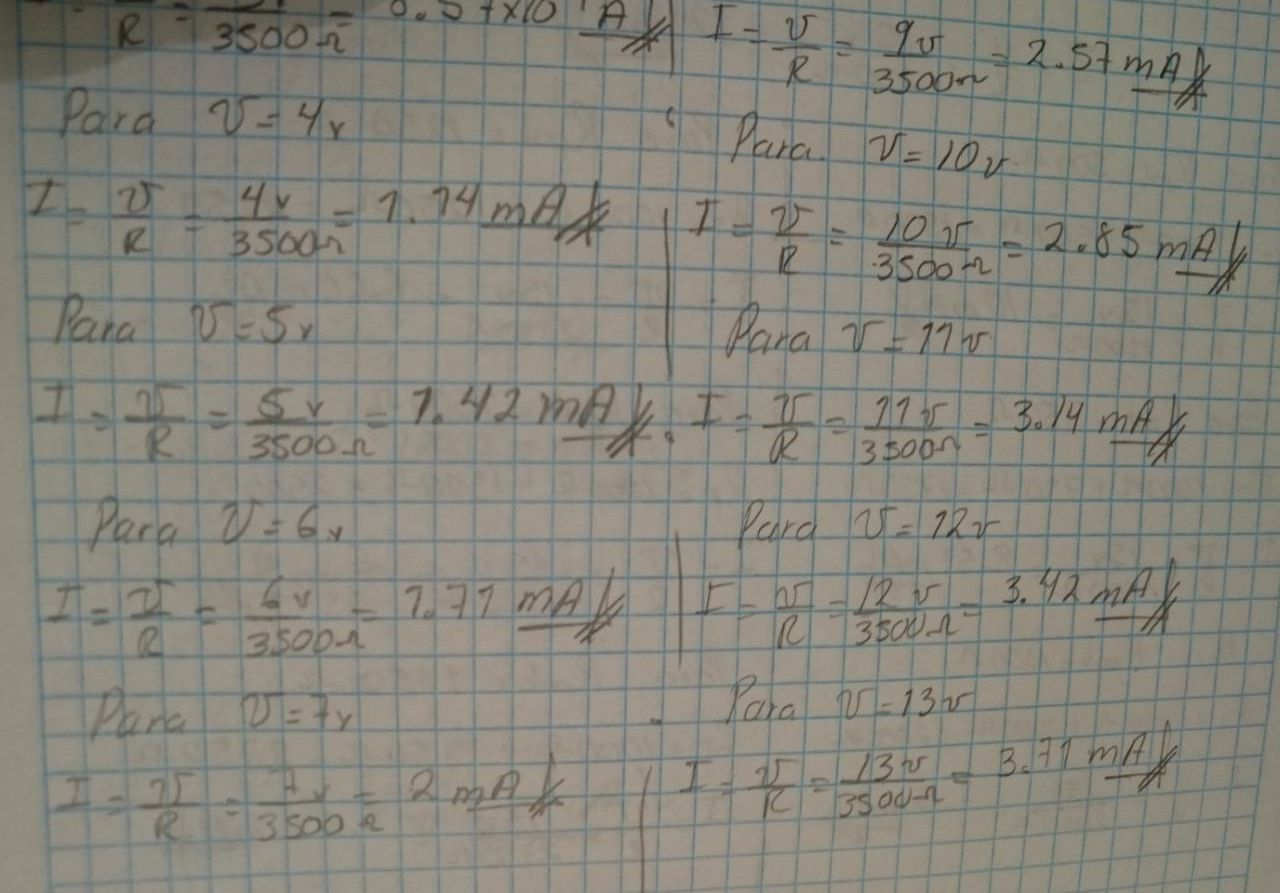 R 3500Ω A
Para V=4v
I = V/R = 4v/3500Ω = 1.14 mA
Para V=5v
I = V/R = 5v/3500Ω = 1.42 mA
Para V=6v
I = V/R = 6v/3500Ω = 1.71 mA
Para V=7v
I = V/R = 7v/3500Ω = 2 mA
I = V/R = 9v/3500Ω = 2.57 mA
Para. V=10v
I = V/R = 10v/3500Ω = 2.85 mA
Para V=11v
I = V/R = 11v/3500Ω = 3.14 mA
Para V=12v
I = V/R = 12v/3500Ω = 3.42 mA
Para V=13v
I = V/R = 13v/3500Ω = 3.71 mA